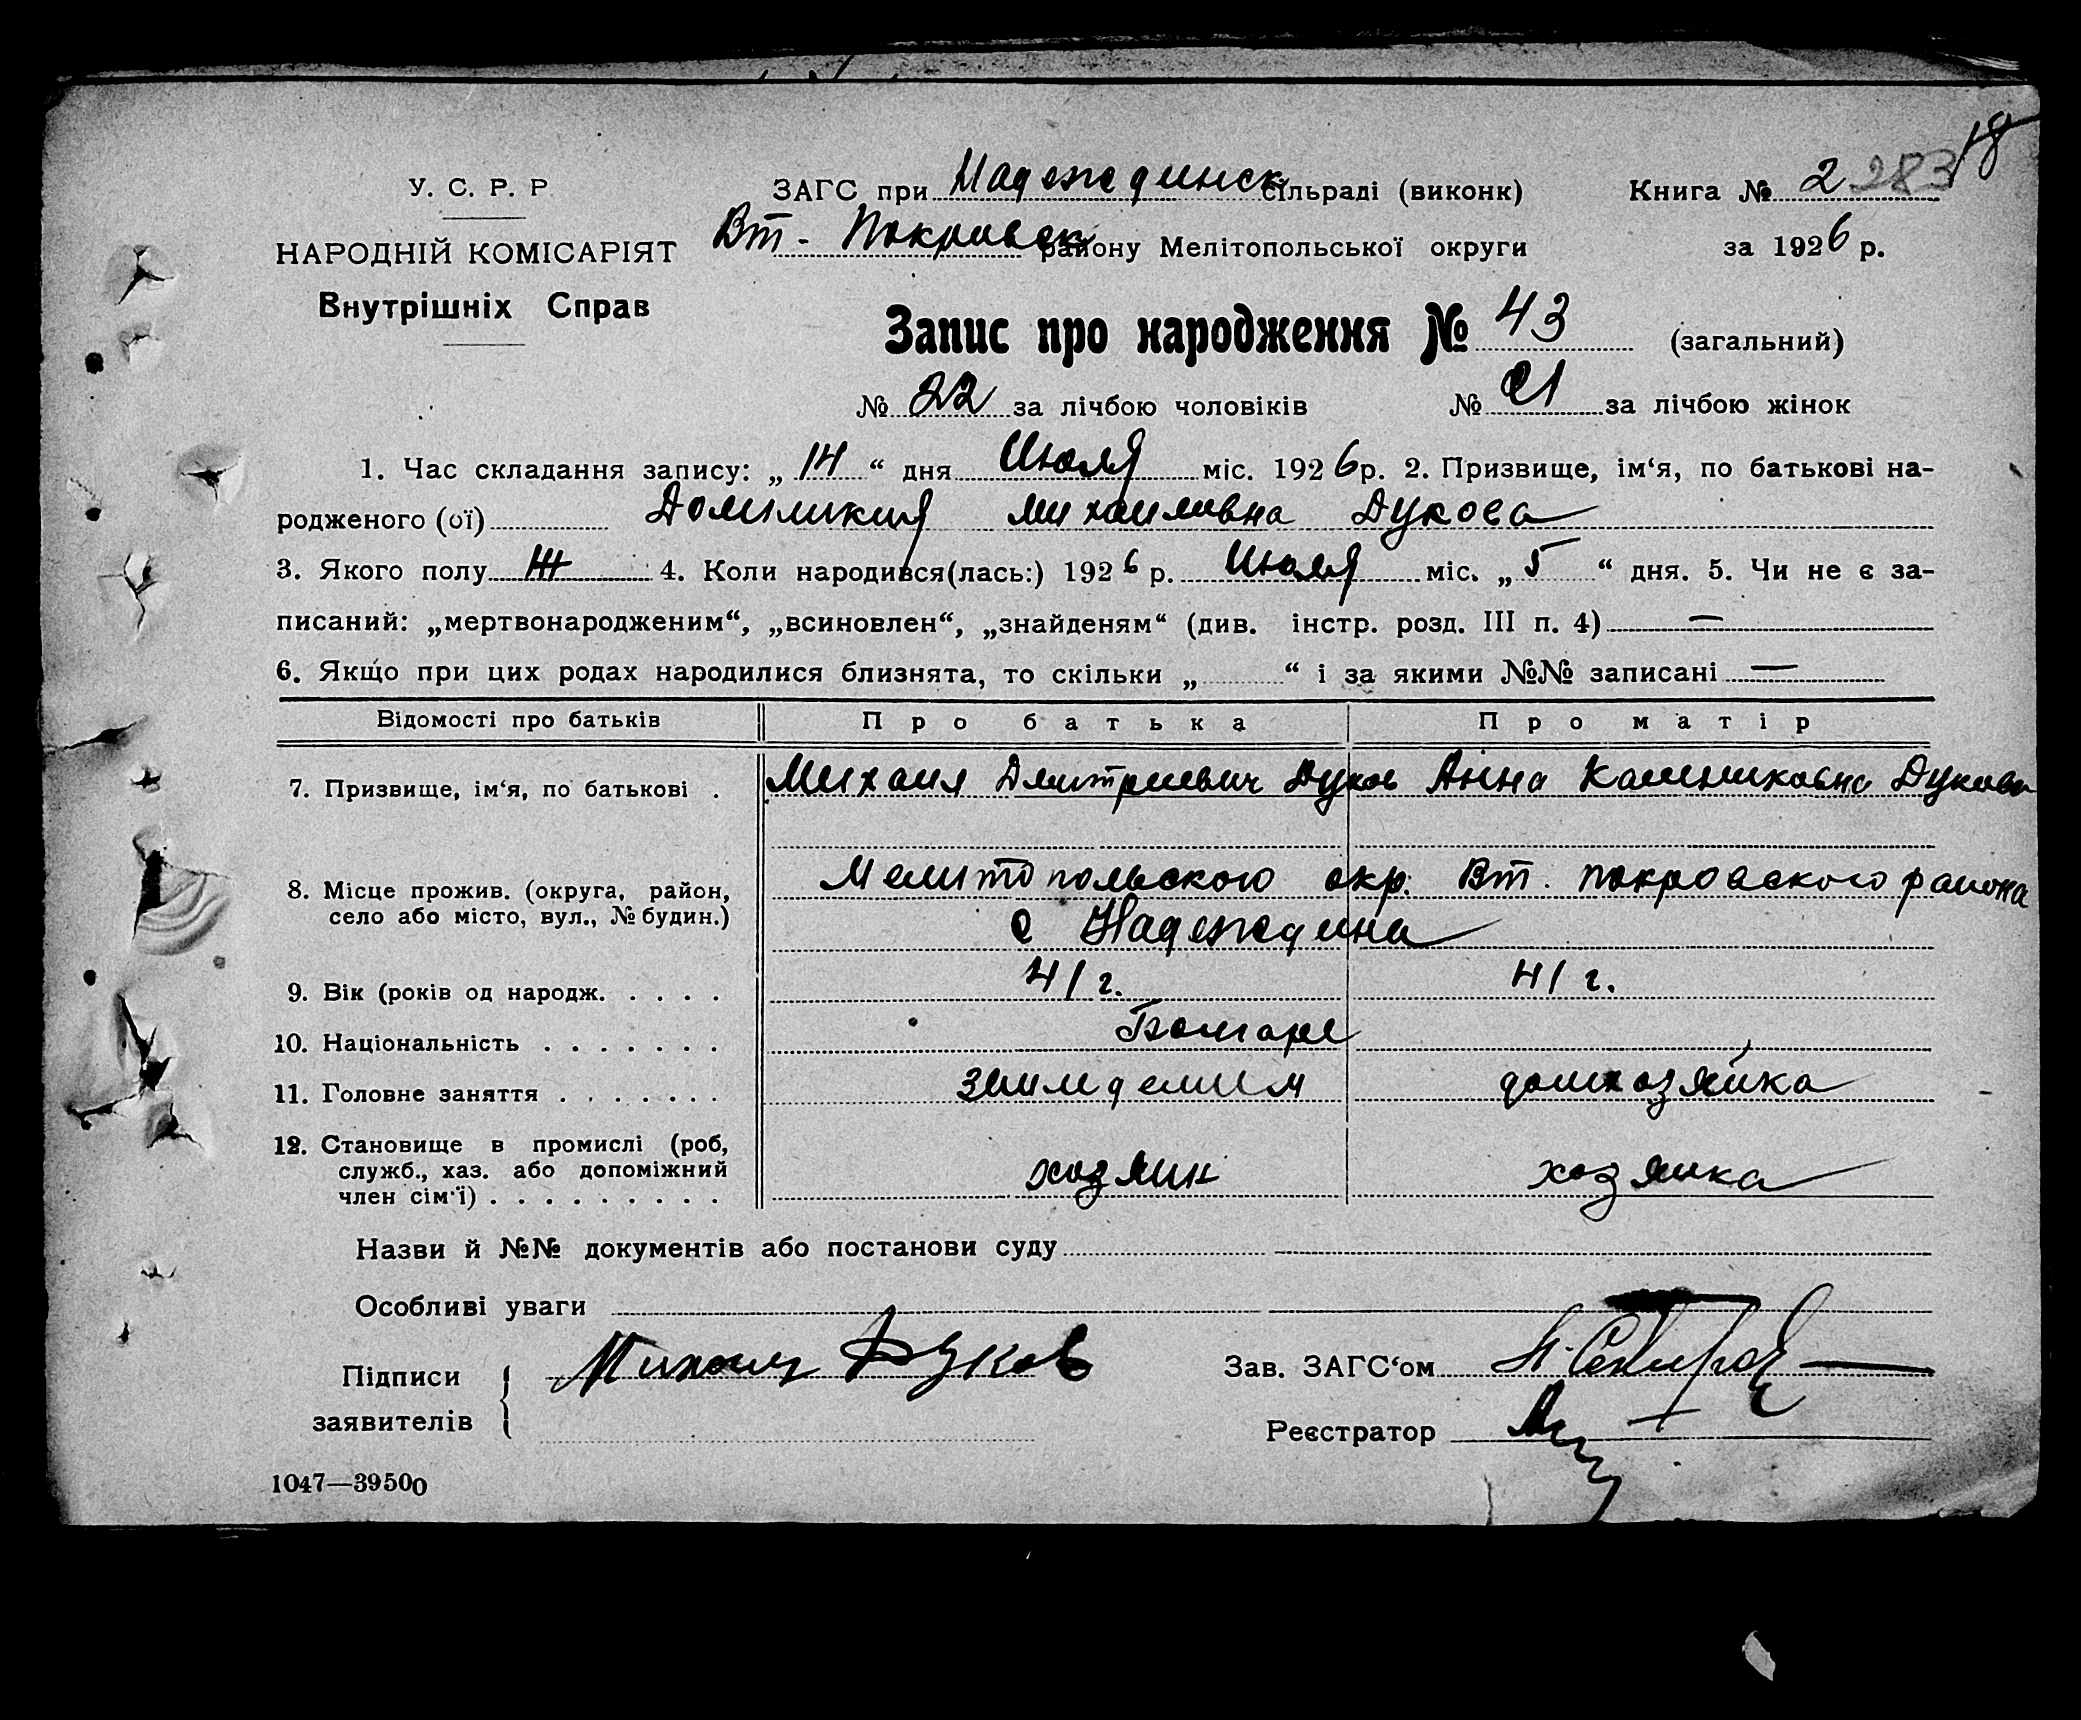 18
У. С. Р. Р. ЗАГС при Надеждинск сільраді (виконк) Книга № 2 283
НАРОДНІЙ КОМІСАРІЯТ Вт. - Покровск району Мелітопольської округи за 1926 р.
Внутрішніх Справ
Запис про народження № 43 (загальний)
№ 22 за лічбою чоловіків № 21 за лічбою жінок
1. Час складання запису: „ 14 “ дня Июля міс. 1926 р. 2. Призвище, ім‘я, по батькові на-
родженого (ої) Домникия Михаиловна Дукова
3. Якого полу Ж 4. Коли народився(лась:) 1926 р. Июля міс. „ 5 “ дня. 5. Чи не є за-
писаний: „мертвонародженим“, „всиновлен“, „знайденям“ (див. інстр. розд. III п. 4) —
6. Якщо при цих родах народилися близнята, то скільки „ “ і за якими №№ записані —
Відомості про батьків Про батька Про матір
7. Призвище, ім‘я, по батькові . Михаил Дмитриевич Дуков Анна Калиниковна Дукова
8. Місце прожив. (округа, район, Мелитопольского окр. Вт. покровского района
село або місто, вул., № будин.) с Надеждина
9. Вік (років од народж. . . . . 41 г. 41 г.
10. Національність . . . . . . . Болгаре
11. Головне заняття . . . . . . . домхозяйка
12. Становище в промислі (роб,
служб., хаз. або допоміжний хозяин хозяика
член сім‘ї) . . . . . . . . .
Назви й №№ документів або постанови суду
Особливі уваги
Підписи Михаил Дуков Зав. ЗАГС‘ом
заявителів Реєстратор
1047—39500